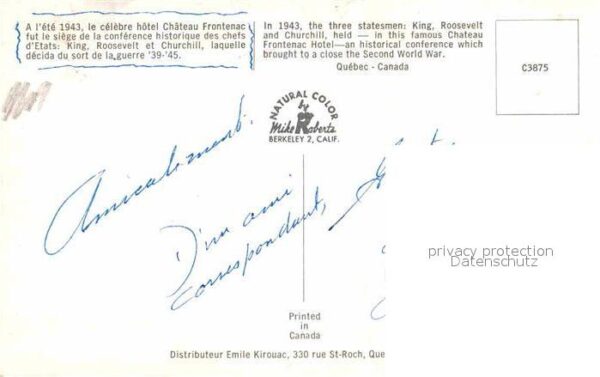 A l'été 1943, le célèbre hôtel Château Frontenac
fut le siège de la conférence historique des chefs
d'Etats: King, Roosevelt et Churchill, laquelle
décida du sort de la guerre '39-'45.
In 1943, the three statesmen: King, Roosevelt
and Churchill, held — in this famous Chateau
Frontenac Hotel—an historical conference which
brought to a close the Second World War.
Québec - Canada
C3875
NATURAL COLOR
by
Mike Roberts
BERKELEY 2, CALIF.
Amicalement.
D'un ami
correspondant,
privacy protection
Datenschutz
Printed
in
Canada
Distributeur Emile Kirouac, 330 rue St-Roch, Que